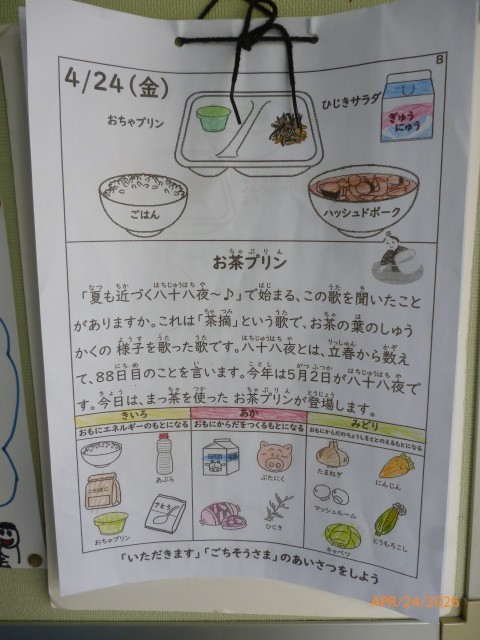 B
4/24(金)
おちゃプリン
ひじきサラダ
ぎゅう
にゅう
ごはん
ハッシュドポーク
お茶プリン
「夏も近づく八十八夜～♪」で始まる、この歌を聞いたこと
がありますか。これは「茶摘」という歌で、お茶の葉のしゅう
かくの様子を歌った歌です。八十八夜とは、立春から数え
て、88日目のことを言います。今年は5月2日が八十八夜で
す。今日は、まっ茶を使ったお茶プリンが登場します。
きいろ
おもにエネルギーのもとになる
あぶら
こむぎこ
さとう
おちゃプリン
あか
おもにからだをつくるもとになる
ぶたにく
ひじき
みどり
おもにからだのちょうしをととのえるもとになる
たまねぎ
にんじん
マッシュルーム
キャベツ
とうもろこし
「いただきます」「ごちそうさま」のあいさつをしよう
APR/24/2026